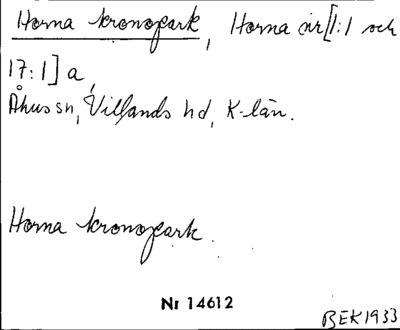 Horna kronopark, Horna nr [1:1 och
17:1] a,
Åhus sn, Villands hd, K-län.
Horna kronopark.
Nr 14612
BEK 1933